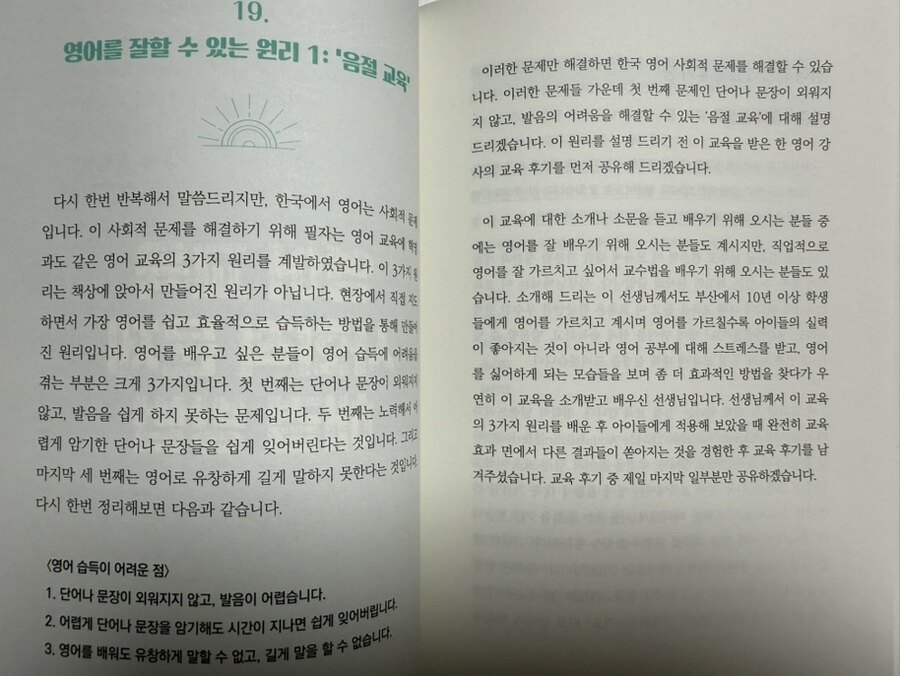 19.
영어를 잘할 수 있는 원리 1: '음절 교육'
다시 한번 반복해서 말씀드리지만, 한국에서 영어는 사회적 문제
입니다. 이 사회적 문제를 해결하기 위해 필자는 영어 교육에 혁명
과도 같은 영어 교육의 3가지 원리를 계발하였습니다. 이 3가지 원
리는 책상에 앉아서 만들어진 원리가 아닙니다. 현장에서 직접 지도
하면서 가장 영어를 쉽고 효율적으로 습득하는 방법을 통해 만들어
진 원리입니다. 영어를 배우고 싶은 분들이 영어 습득에 어려움을
겪는 부분은 크게 3가지입니다. 첫 번째는 단어나 문장이 외워지지
않고, 발음을 쉽게 하지 못하는 문제입니다. 두 번째는 노력해서 어
렵게 암기한 단어나 문장들을 쉽게 잊어버린다는 것입니다. 그리고
마지막 세 번째는 영어로 유창하게 길게 말하지 못한다는 것입니다.
다시 한번 정리해보면 다음과 같습니다.
〈영어 습득이 어려운 점〉
1. 단어나 문장이 외워지지 않고, 발음이 어렵습니다.
2. 어렵게 단어나 문장을 암기해도 시간이 지나면 쉽게 잊어버립니다.
3. 영어를 배워도 유창하게 말할 수 없고, 길게 말을 할 수 없습니다.
이러한 문제만 해결하면 한국 영어 사회적 문제를 해결할 수 있습
니다. 이러한 문제들 가운데 첫 번째 문제인 단어나 문장이 외워지
지 않고, 발음의 어려움을 해결할 수 있는 '음절 교육'에 대해 설명
드리겠습니다. 이 원리를 설명 드리기 전 이 교육을 받은 한 영어 강
사의 교육 후기를 먼저 공유해 드리겠습니다.
이 교육에 대한 소개나 소문을 듣고 배우기 위해 오시는 분들 중
에는 영어를 잘 배우기 위해 오시는 분들도 계시지만, 직업적으로
영어를 잘 가르치고 싶어서 교수법을 배우기 위해 오시는 분들도 있
습니다. 소개해 드리는 이 선생님께서도 부산에서 10년 이상 학생
들에게 영어를 가르치고 계시며 영어를 가르칠수록 아이들의 실력
이 좋아지는 것이 아니라 영어 공부에 대해 스트레스를 받고, 영어
를 싫어하게 되는 모습들을 보며 좀 더 효과적인 방법을 찾다가 우
연히 이 교육을 소개받고 배우신 선생님입니다. 선생님께서 이 교육
의 3가지 원리를 배운 후 아이들에게 적용해 보았을 때 완전히 교육
효과 면에서 다른 결과들이 쏟아지는 것을 경험한 후 교육 후기를 남
겨주셨습니다. 교육 후기 중 제일 마지막 일부분만 공유하겠습니다.